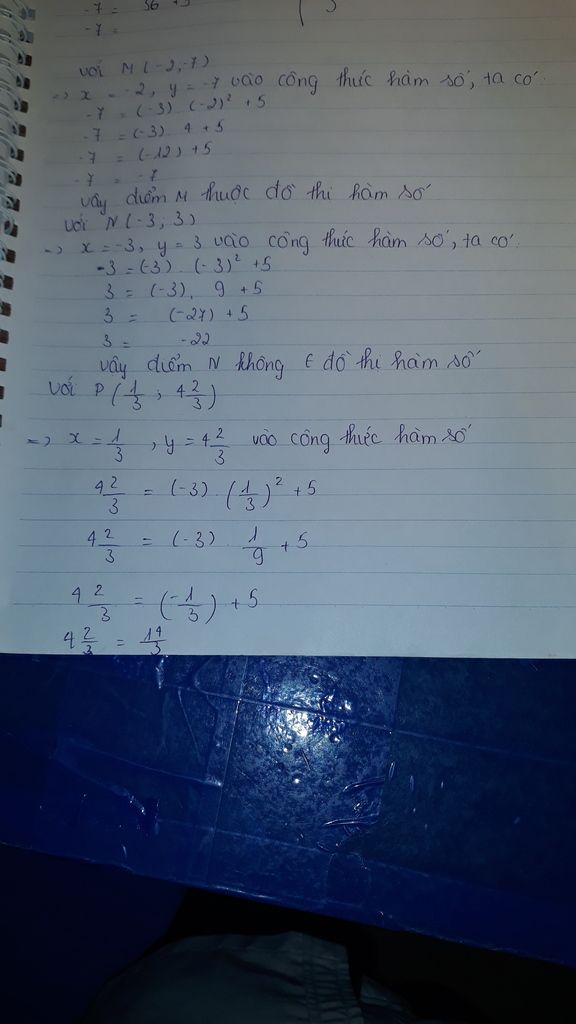 -7 = 36 + 5
-7 =
với M(-2,-7)
=> x = -2, y = -7 vào công thức hàm số, ta có:
-7 = (-3) . (-2)² + 5
-7 = (-3) 4 + 5
-7 = (-12) + 5
-7 = -7
vậy điểm M thuộc đồ thị hàm số
với N(-3; 3)
=> x = -3, y = 3 vào công thức hàm số, ta có:
-3 = (-3) . (-3)² + 5
3 = (-3). 9 + 5
3 = (-27) + 5
3 = -22
vậy điểm N không ∈ đồ thị hàm số
với P(1/3 ; 4 2/3)
=> x = 1/3, y = 4 2/3 vào công thức hàm số
4 2/3 = (-3) . (1/3)² + 5
4 2/3 = (-3) . 1/9 + 5
4 2/3 = (-1/3) + 5
4 2/3 = 14/3